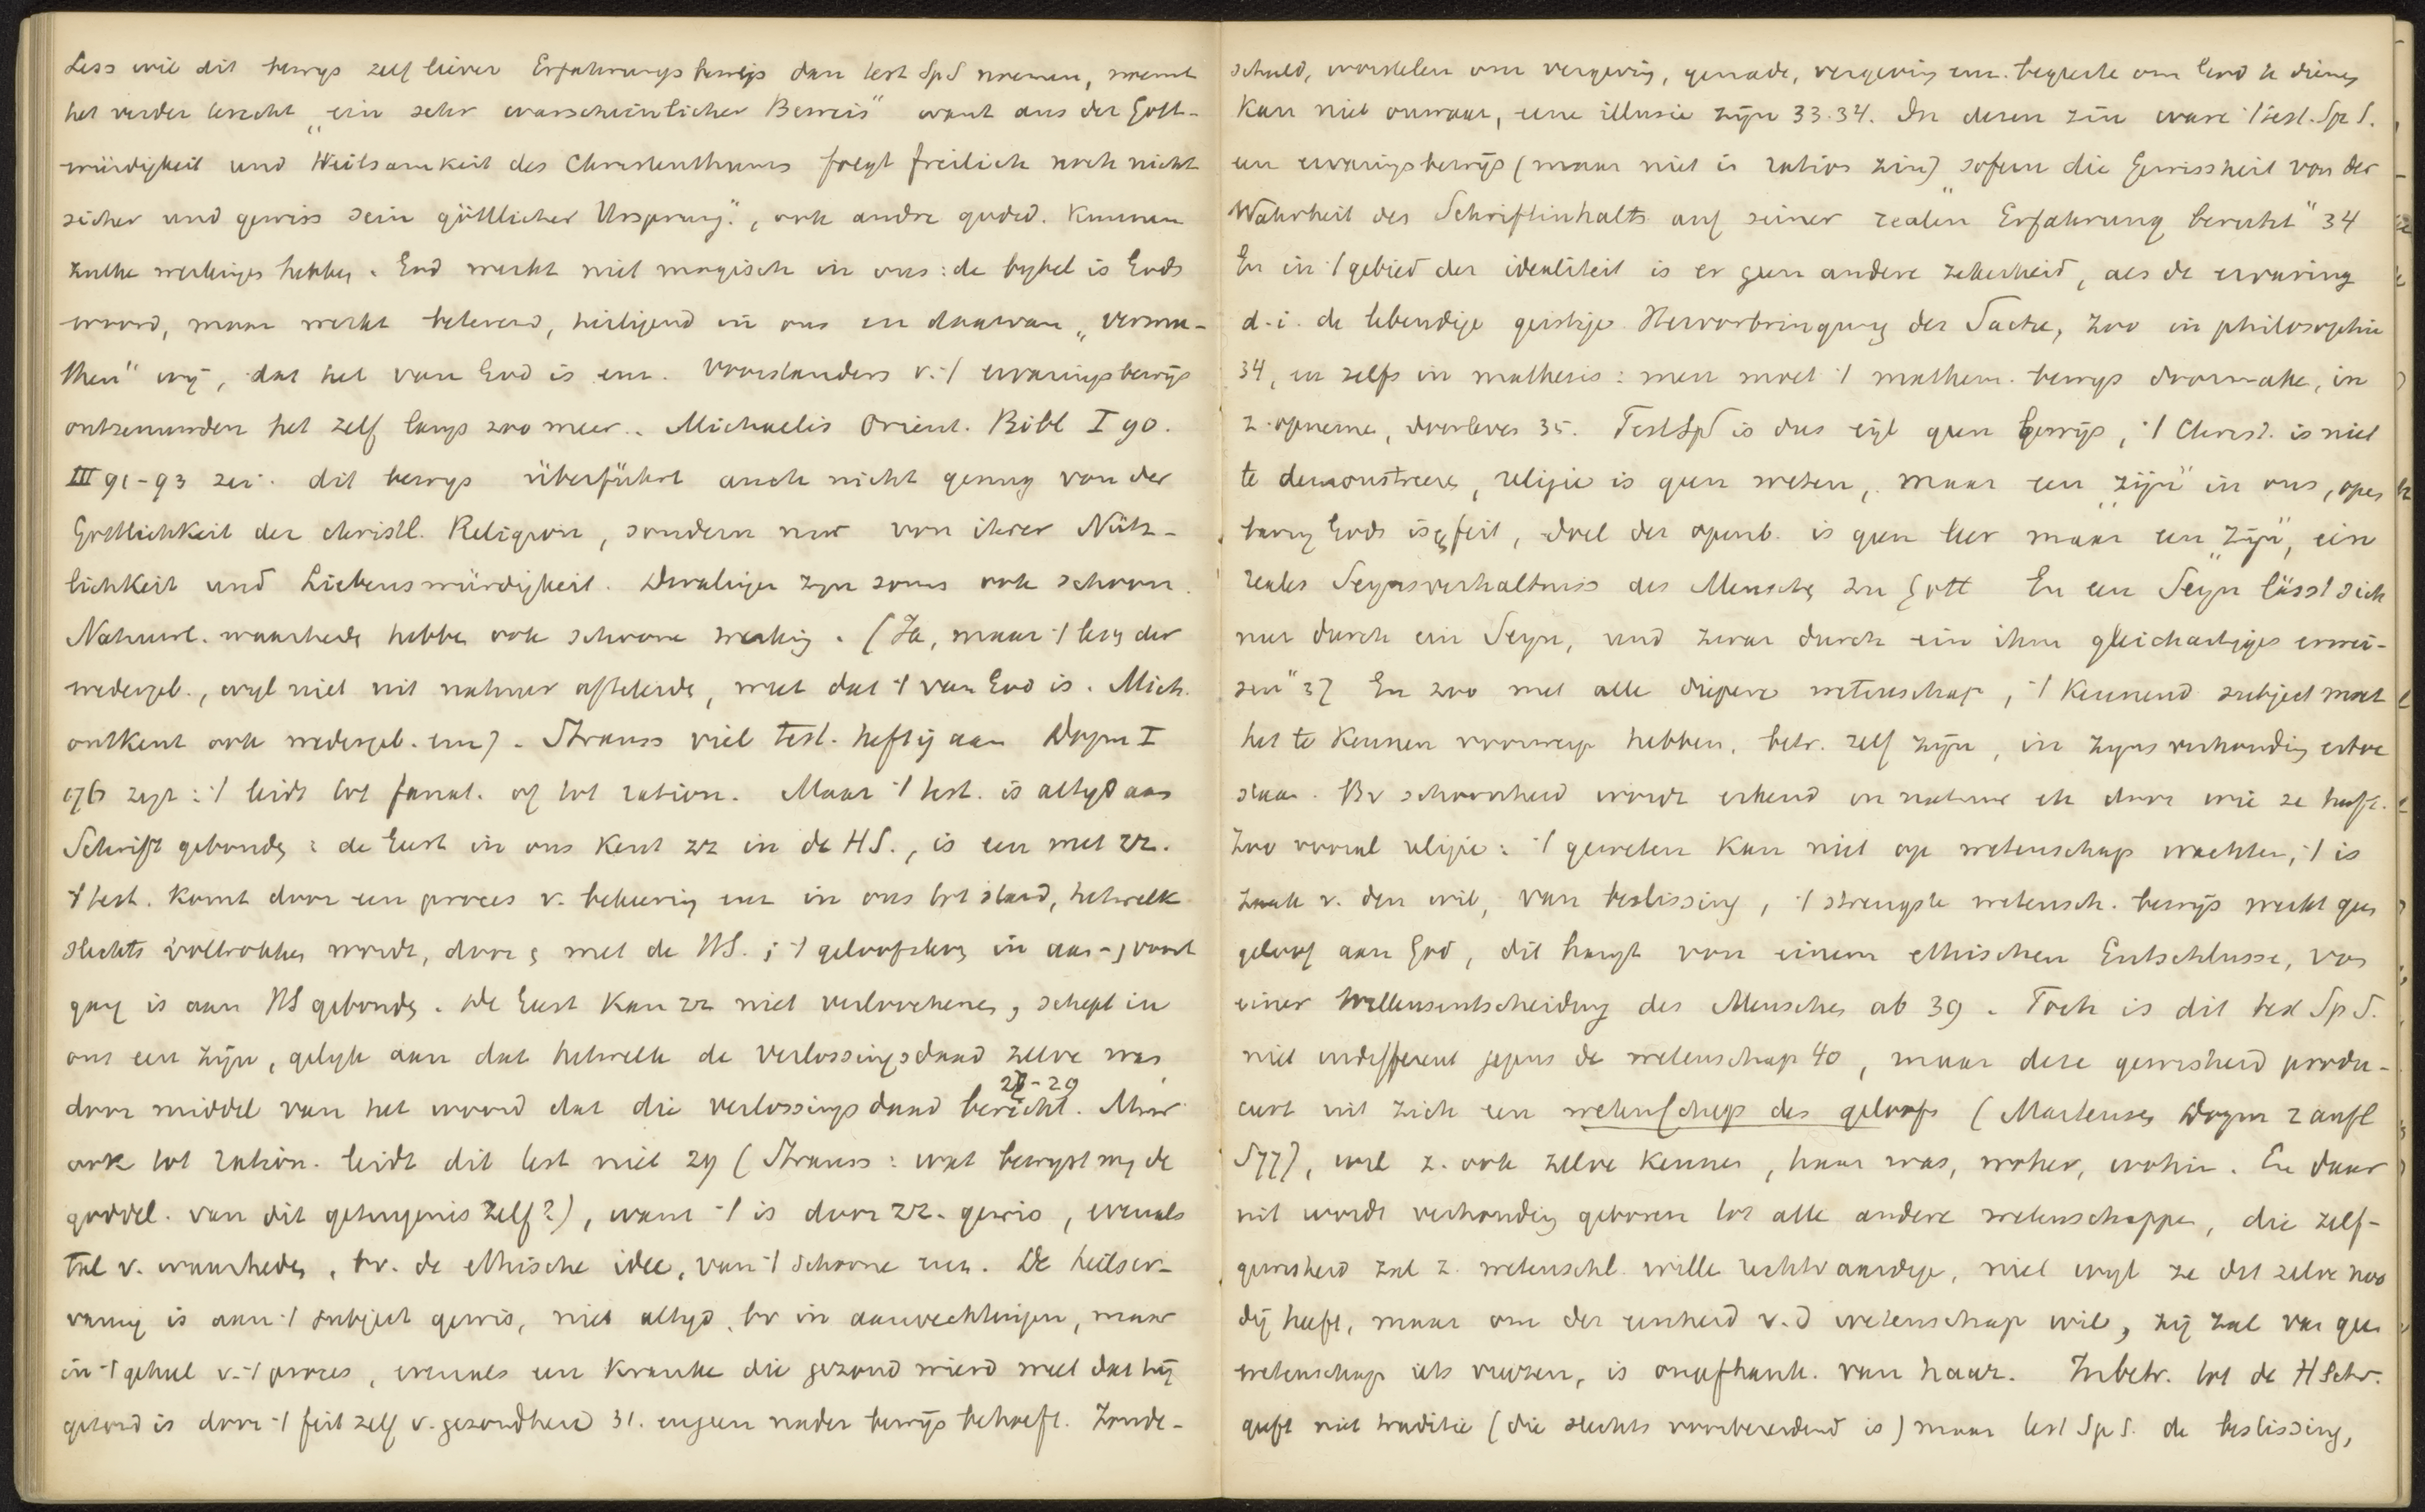 Less wil dit bewys zelf liever Erfahrungsbeweis dan test SpS noemen, noemt
het verder terecht „ein sehr warscheinlicher Beweis" want aus der Gott-
würdigkeit und Heilsamkeit des Christenthums folgt freilich noch nicht
sicher und gewiss sein göttlicher Ursprung", ook andre godsd. kunnen
zulke werkingen hebben. God werkt niet magisch in ons: de bybel is Gods
woord, maar werkt beterend, heiligend in ons en daarvan „vermu-
then" wij, dat het van God is enz. Voorstanders v. 't ervaringsbewys
ontzenuwden het zelf langs zoo meer. Michaelis Orient. Bibl I 90.
III 91-93 zei: dit bewys überführt auch nicht genug von der
Göttlichkeit der christl. Religion, sondern nur von ihrer Nütz-
lichkeit und Liebenswürdigkeit. Dwalingen zyn soms ook schoon.
Natuurl. waarheden hebben ook schoone werking. (Ja, maar 't lezen der
wedergeb., wyl niet uit natuur afleidende, weet dat 't van God is. Mich.
ontkent ook wedergeb. enz). Strauss viel test. heftig aan Dogm I
176 zegt: 't leidt tot fanat. of tot ration. Maar 't test. is altyd aan
Schrift gebonden: de Geest in ons kent zz in de HS., is een met zz.
't test. komt door een proces v. bekeering enz in ons tot stand, hetwelk
slechts voltrokken wordt, door en met de HS.; 't geloofsleven in aan- en voort
gang is aan HS gebonden. De Geest kan zz niet verloochenen, schept in
ons een zijn, gelyk aan dat hetwelk de verlossingsdaad zelve was,
door middel van het woord dat die verlossingsdaad bericht. 28-29 Maar
ook tot ration. leidt dit test niet 29 (Strauss: wat bewyst my de
goddel. van dit getuigenis zelf?), want 't is door zz. gewis, evenals
tal v. waarheden, bv. de ethische idee, van 't schoone enz. De heilser-
varing is aan 't subject gewis, niet altyd, bv in aanvechtingen, maar
in 't geheel v. 't proces, evenals een kranke die gezond wierd weet dat hij
gezond is door 't feit zelf v. gezondheid 31. en geen nader bewijs behoeft. Zonde-
schuld, worstelen om vergeving, genade, vergeving enz. begeerte om God te dienen
kan niet onwaar, eene illusie zijn 33.34. In dezen zin ware 't test. Sp S.
een ervaringsbewijs (maar niet in ration zin) „sofern die Gewissheit von der
Wahrheit des Schriftinhalts auf seiner realen Erfahrung beruht" 34
En in 't gebied der idealiteit is er geen andere zekerheid, als de ervaring
d.i. de lebendige geistige Hervorbringung der Sache, zoo in philosophie
34, en zelfs in mathesis: men moet 't mathem. bewys doormaken, in
z. opnemen, doorleven 35. TestSpS is dus eigl geen bewijs, 't Christ. is niet
te demonstreeren, religie is geen weten, maar een „zijn" in ons, open
baring Gods is een feit, doel der openb. is geen leer maar een „zijn", ein
reales Seynsverhaltniss des Menschen zu Gott En een Seyn lässt sich
nur durch ein Seyn, und zwar durch ein ihm gleichartiges erwei-
sen" 37 En zoo met alle diepere wetenschap, 't kennend subject moet
het te kennen voorwerp hebben, betr. zelf zijn, in zynsverhouding ertoe
staan. Bv schoonheid wordt erkend in natuur etc door wie ze heeft.
Zoo vooral religie: 't geweten kan niet op wetenschap wachten, 't is
zaak v. den wil, van beslissing, 't strengste wetensch. bewijs werkt geen
geloof aan God, dit hangt von einem ethischen Entschlusse, von
einer Willensentscheidung des Menschen ab 39. Toch is dit test Sp S.
niet indifferent jegens de wetenschap 40, maar deze gewisheid produ-
ceert uit zich een wetenschap des geloofs (Martensen Dogm 2 aufl
S77), wil z. ook zelve kennen, haar was, woher, wohin. En daar
uit wordt verhouding geboren tot alle andere wetenschappen, die zelf-
gewisheid zal z. wetenschl. wille rechtvaardigen, niet wyl ze dit zelve noo
dig heeft, maar om der eenheid v.d wetenschap wil, zij zal van geen
wetenschap iets vreezen, is onafhank. van haar. In betr. tot de H Schr.
geeft niet traditie (die slechts voorbereidend is) maar test Sp S. de beslissing,